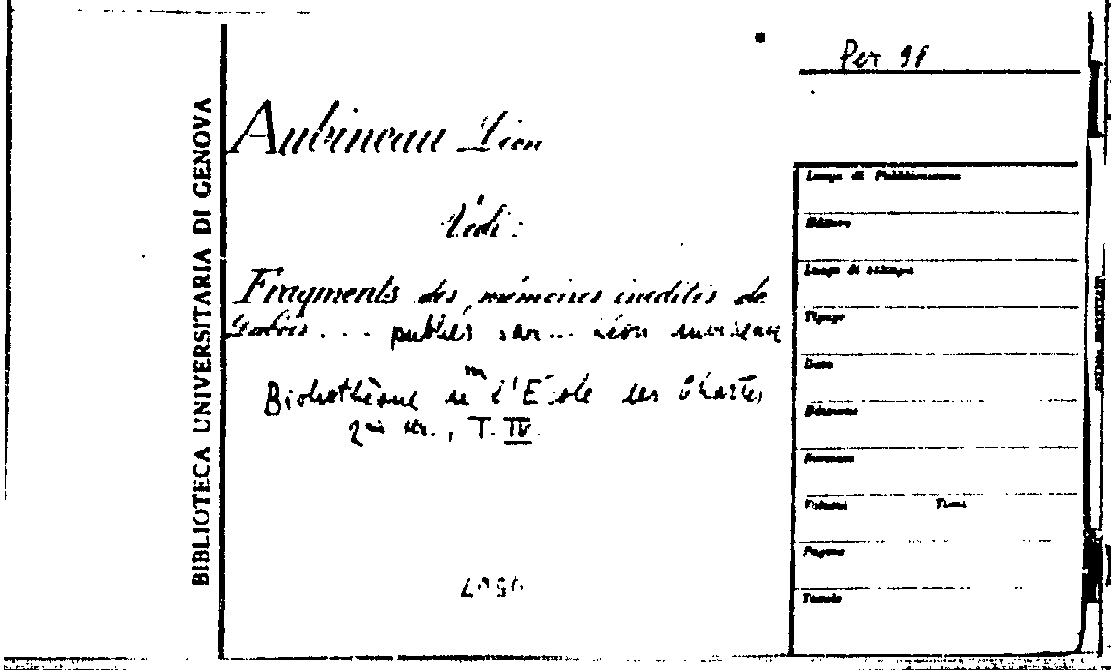 Per 91
BIBLIOTECA UNIVERSITARIA DI GENOVA
Aubineau Léon
Vedi:
Fragments des mémoires inédits de
Dubois... publiés par... Léon Aubineau
Bibliothèque de l'École des Chartes
2me sér., T. IV.
Luogo di Pubblicazione
Editore
Luogo di stampa
Tipogr
Data
Edizione
Formato
Volumi Tomi
Pagine
Tavole